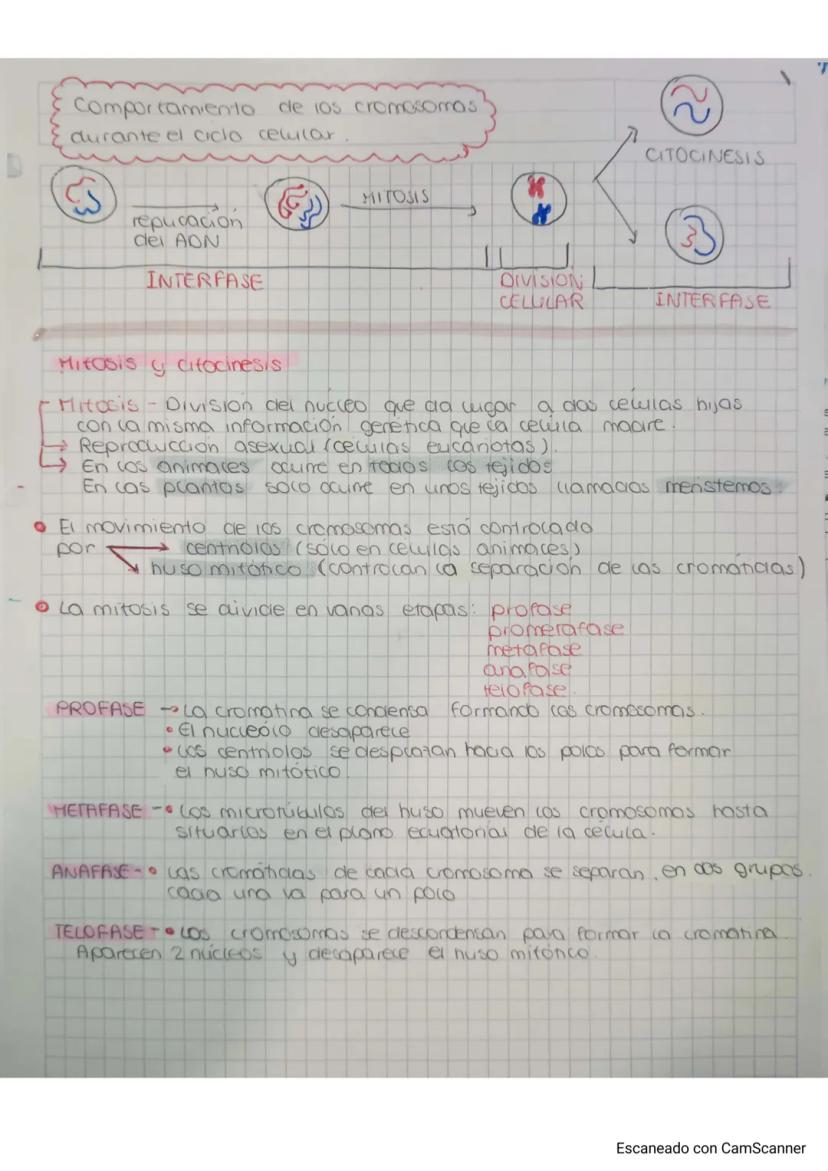 Comportamiento de los cromosomas
durante el ciclo celular.
CITOCINESIS
replicación
del ADN
MITOSIS
INTERFASE
DIVISION
CELULAR
INTERFASE
Mitosis y citocinesis
Mitosis - División del núcleo que da lugar a dos células hijas
con la misma información genética que la célula madre.
→ Reproducción asexual (células eucariotas).
→ En los animales ocurre en todos los tejidos
En las plantas solo ocurre en unos tejidos llamados meristemos.
• El movimiento de los cromosomas está controlado
por → centriolos (sólo en células animales)
huso mitótico (controlan la separación de las cromátidas)
• La mitosis se divide en varias etapas: profase
prometafase
metafase
anafase
telofase.
PROFASE → La cromatina se condensa formando los cromosomas.
• El nucleolo desaparece
• Los centriolos se desplazan hacia los polos para formar
el huso mitótico.
METAFASE - • Los microtúbulos del huso mueven los cromosomas hasta
situarlos en el plano ecuatorial de la célula.
ANAFASE - • Las cromátidas de cada cromosoma se separan, en dos grupos.
cada una va para un polo
TELOFASE - • Los cromosomas se descondensan para formar la cromatina
Aparecen 2 núcleos y desaparece el huso mitótico.
Escaneado con CamScanner